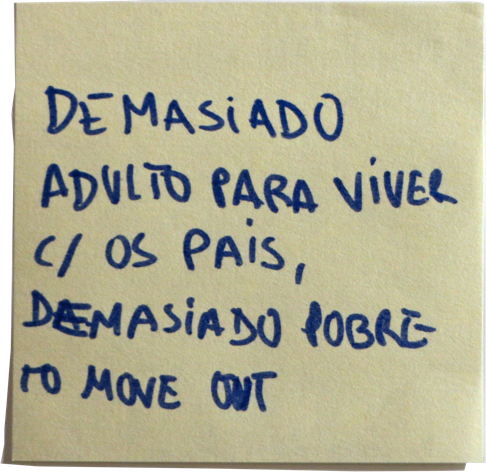 DEMASIADO
ADULTO PARA VIVER
C/ OS PAIS,
DEMASIADO POBRE
TO MOVE OUT